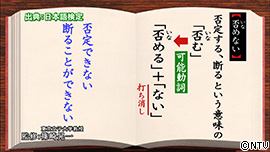 出典:日本語検定
【否めない】
いな
否定する、断るという意味の
いな
「否む」
可能動詞
いな
「否める」+「ない」
打ち消し
否定できない
断ることができない
©NTU